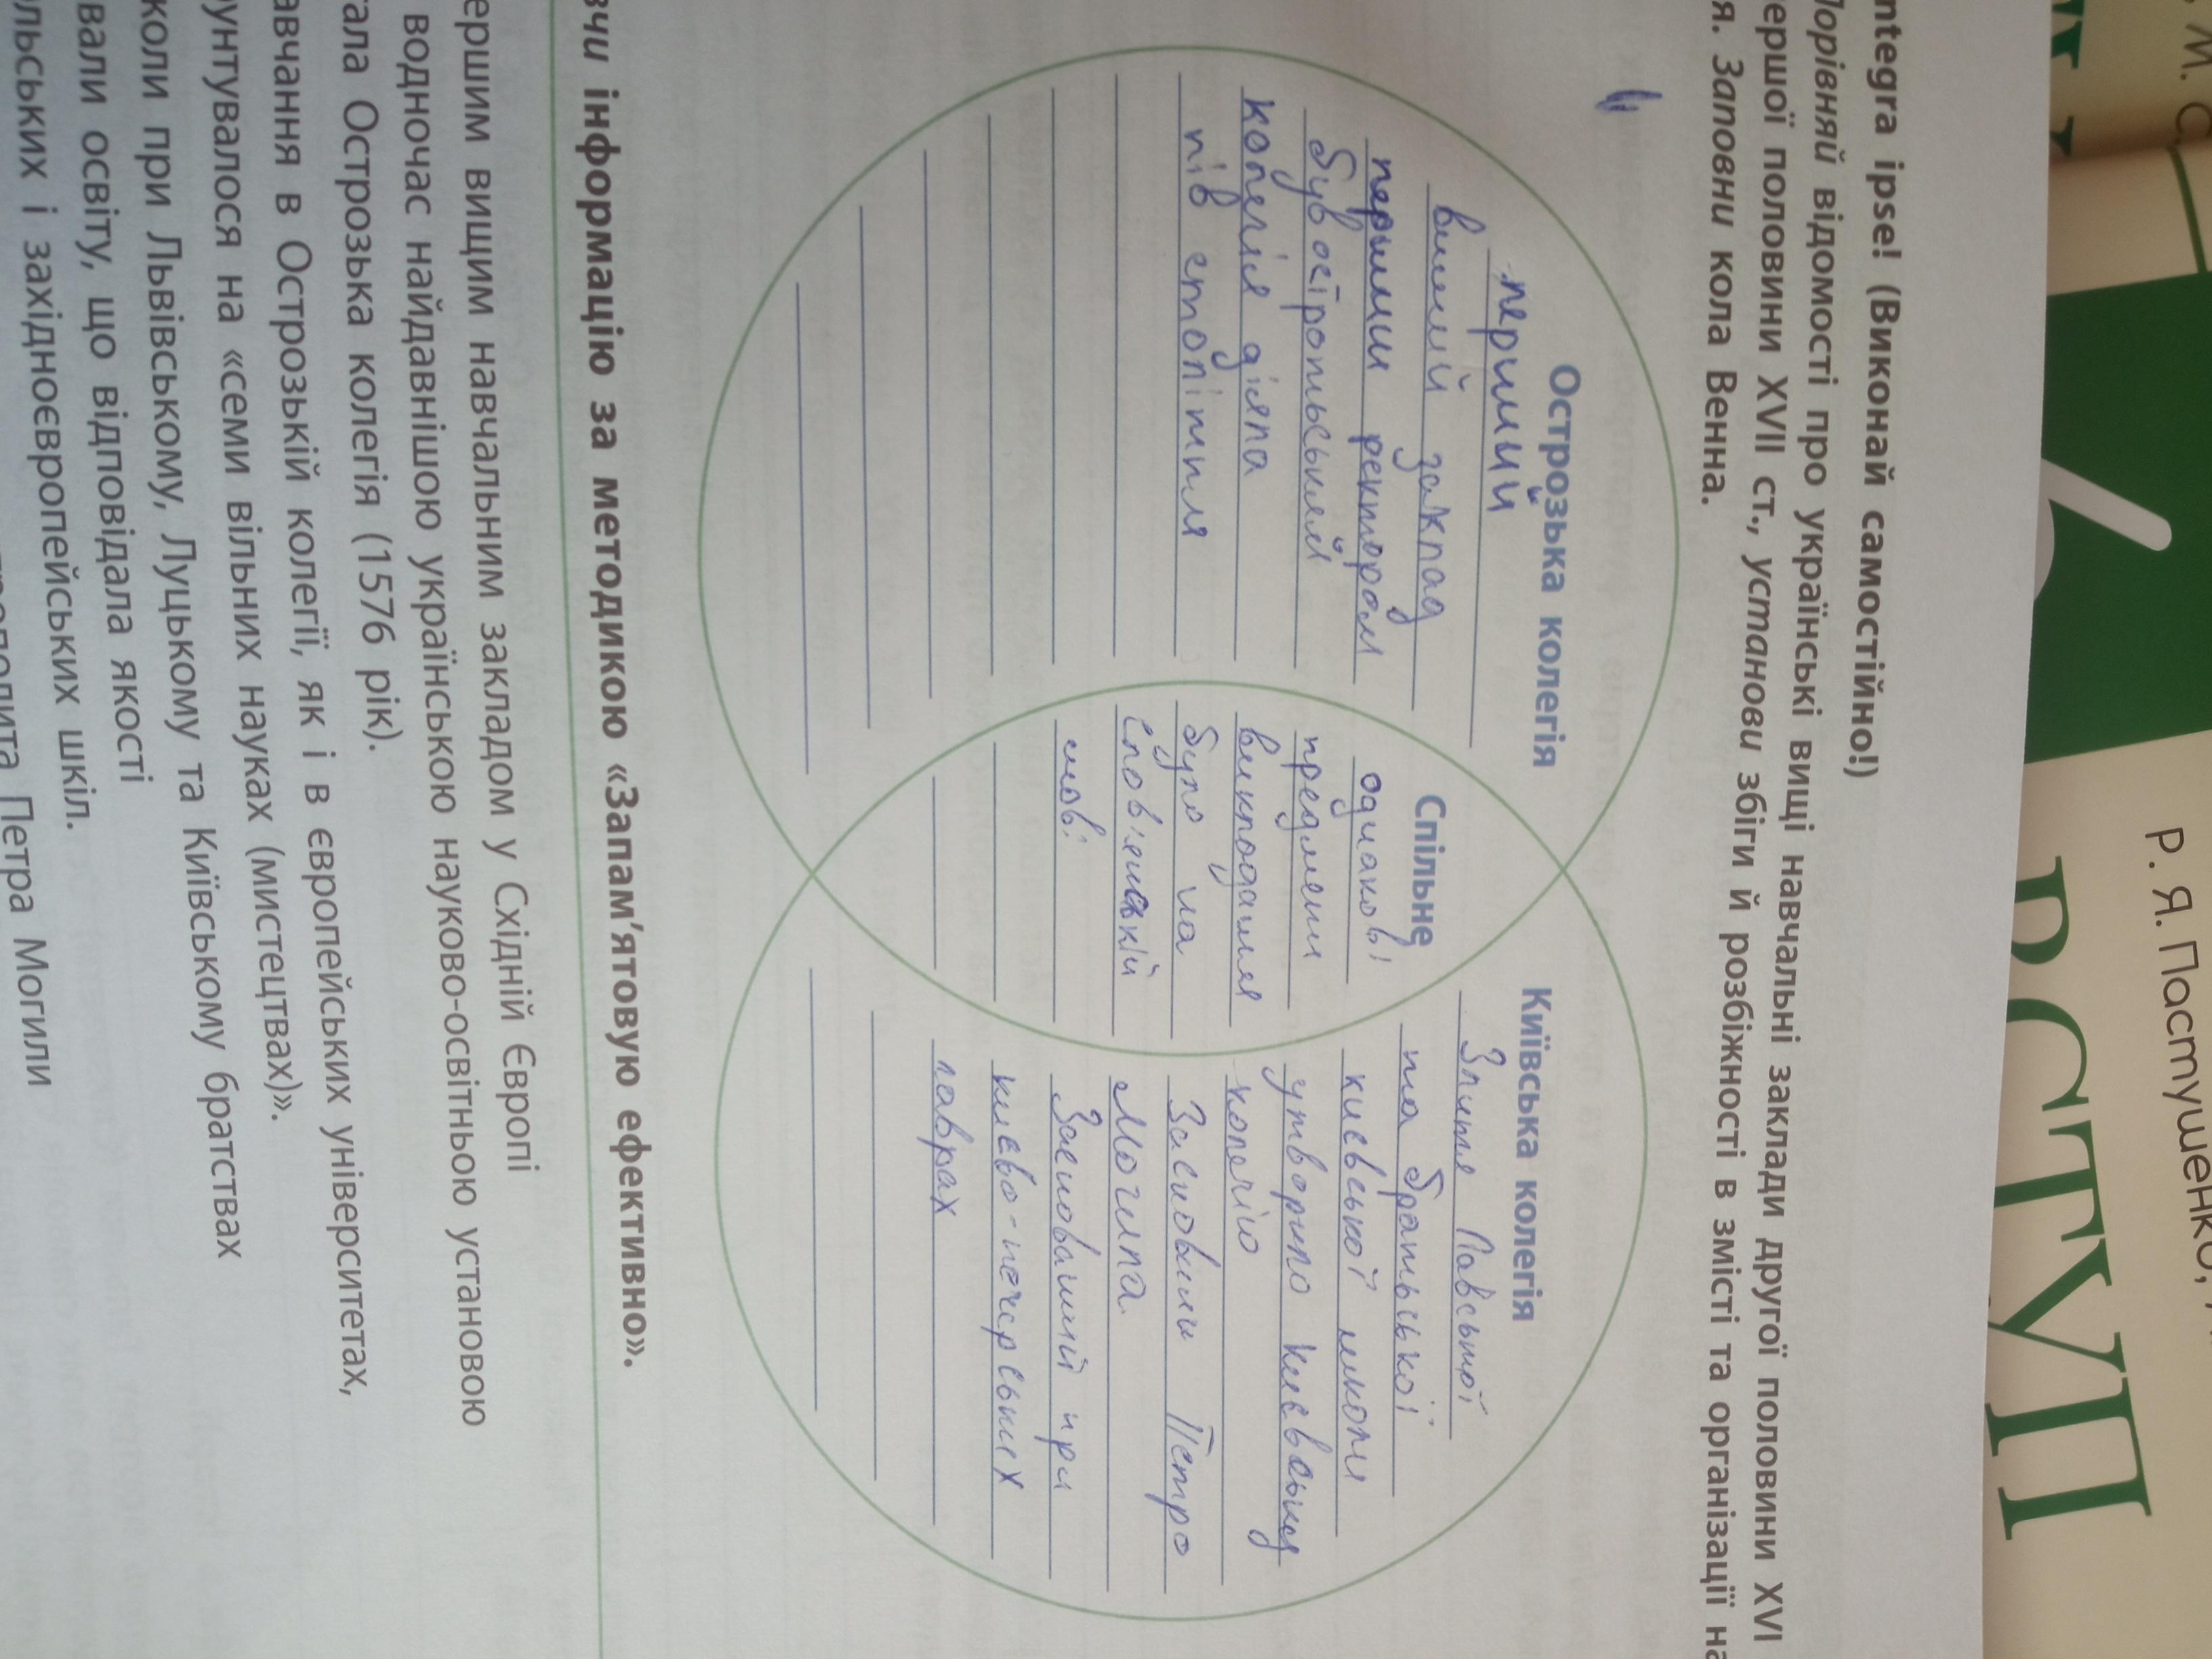 М. С
Р. Я. Пастушенко,
ВСТУП
ntegra ipse! (Виконай самостійно!)
Порівняй відомості про українські вищі навчальні заклади другої половини XVI
ершої половини XVII ст., установи збіги й розбіжності в змісті та організації на
я. Заповни кола Венна.
Острозька колегія
перший
вищий заклад
першим ректором
був остропський
колегія діяла
пів століття
Спільне
однакові
предмети
викладання
було на
слов'янській
мові
Київська колегія
Злиття Лавської
та братської
києвської школи
утворило Києвську
колегію
Засновник Петро
Могила
Заснований при
києво-печерських
лаврах
вчи інформацію за методикою «Запам'ятовую ефективно».
ершим вищим навчальним закладом у Східній Європі
водночас найдавнішою українською науково-освітньою установою
тала Острозька колегія (1576 рік).
авчання в Острозькій колегії, як і в європейських університетах,
рунтувалося на «семи вільних науках (мистецтвах)».
коли при Львівському, Луцькому та Київському братствах
вали освіту, що відповідала якості
ольських і західноєвропейських шкіл.
Петра Могили